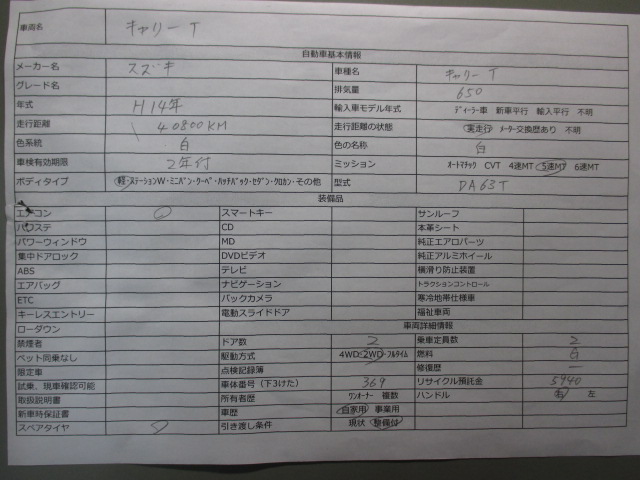 車両名 キャリー T
自動車基本情報
メーカー名 スズキ 車種名 キャリー T
グレード名 排気量 650
年式 H14年 輸入車モデル年式 ディーラー車 新車平行 輸入平行 不明
走行距離 40800KM 走行距離の状態 実走行 メーター交換歴あり 不明
色系統 白 色の名称 白
車検有効期限 2年付 ミッション オートマチック CVT 4速MT 5速MT 6速MT
ボディタイプ 軽・ステーションW・ミニバン・クーペ・ハッチバック・セダン・クロカン・その他 型式 DA63T
装備品
エアコン スマートキー サンルーフ
パワステ CD 本革シート
パワーウィンドウ MD 純正エアロパーツ
集中ドアロック DVDビデオ 純正アルミホイール
ABS テレビ 横滑り防止装置
エアバッグ ナビゲーション トラクションコントロール
ETC バックカメラ 寒冷地帯仕様車
キーレスエントリー 電動スライドドア 福祉車両
ローダウン 車両詳細情報
禁煙者 ドア数 2 乗車定員数 2
ペット同乗なし 駆動方式 4WD・2WD・フルタイム 燃料
限定車 点検記録簿 修復歴 ー
試乗、現車確認可能 車体番号（下3けた） 369 リサイクル預託金 5940
取扱説明書 所有者歴 ワンオーナー 複数 ハンドル 右 左
新車時保証書 車歴 自家用 事業用
スペアタイヤ 引き渡し条件 現状 整備付